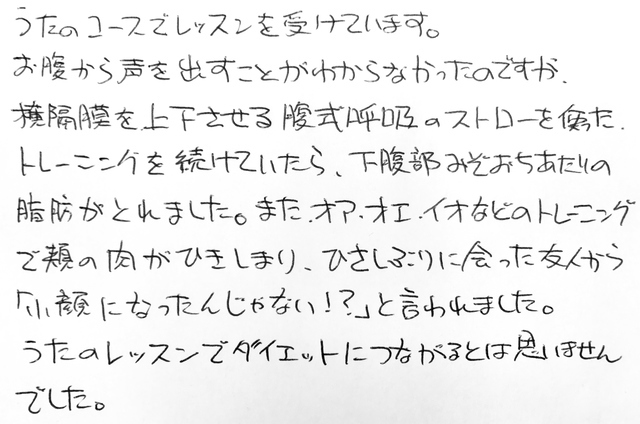 うたのコースでレッスンを受けています。
お腹から声を出すことがわからなかったのですが、
横隔膜を上下させる腹式呼吸のストローを使った
トレーニングを続けていたら、下腹部みぞおちあたりの
脂肪がとれました。また、オア・オエ・イオなどのトレーニング
で頬の肉がひきしまり、ひさしぶりに会った友人から
「小顔になったんじゃない!?」と言われました。
うたのレッスンでダイエットにつながるとは思いません
でした。